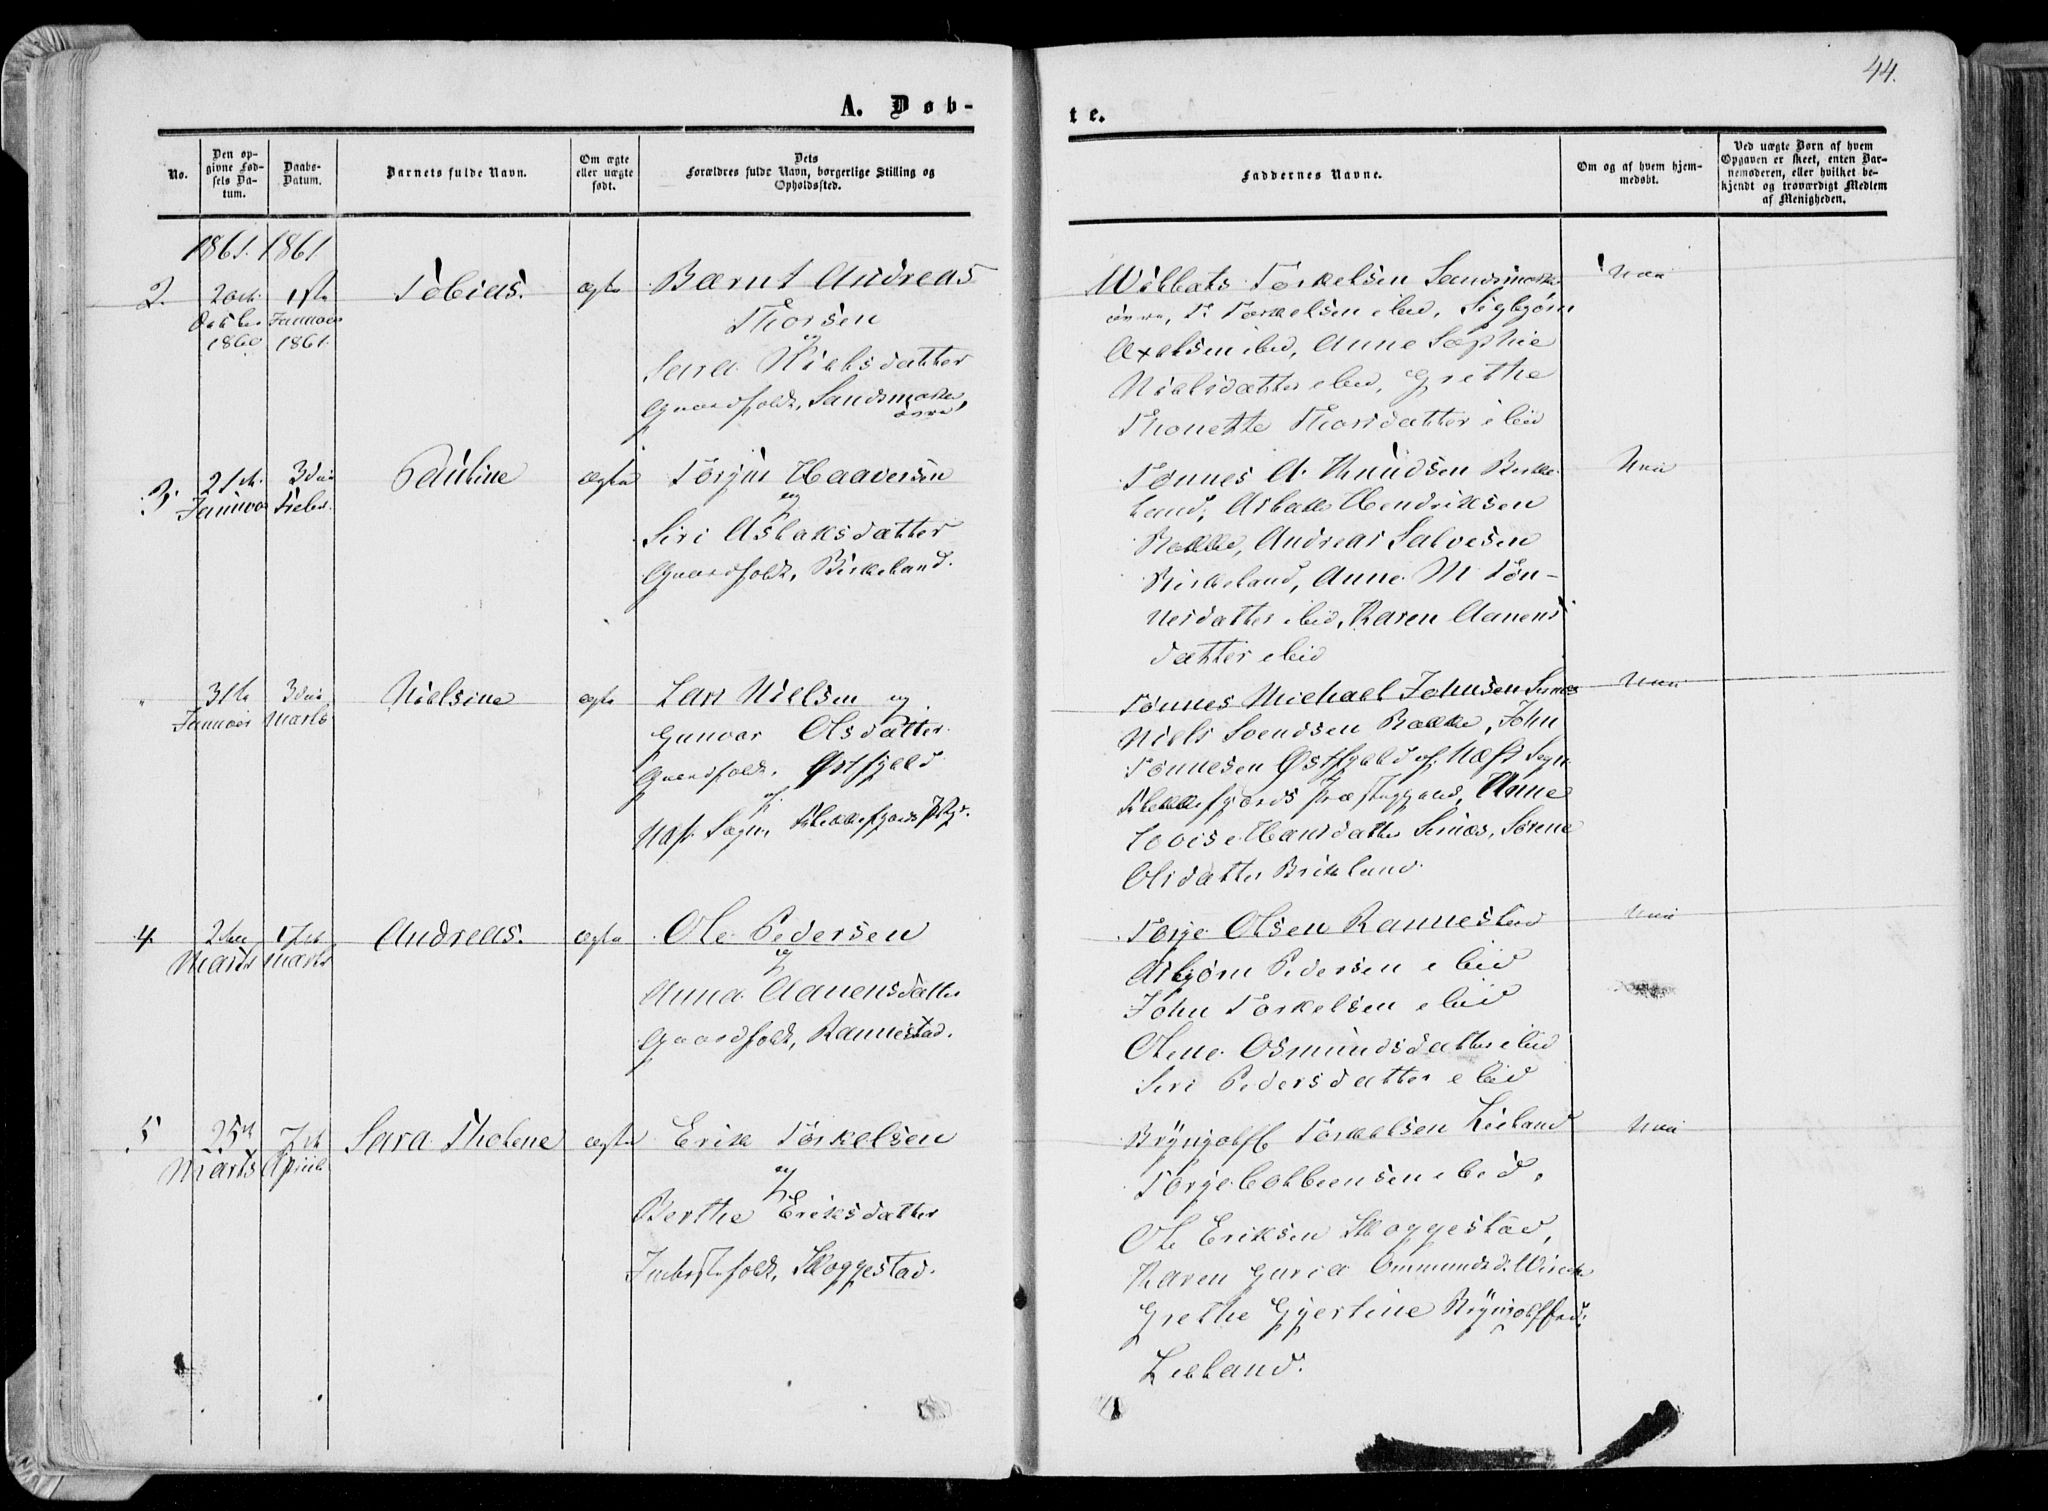 44.
A. Døb-
te.
No.
Den op-
givne Fød-
sels Da-
tum.
Daabs-
Datum.
Barnets fulde Navn.
Om ægte
eller uægte
født.
Dets
Forældres fulde Navn, borgerlige Stilling og
Opholdssted.
Faddernes Navne.
Om og af hvem hjem-
medøbt.
Ved uægte Børn af hvem
Opgaven er skeet, enten Bar-
nemoderen, eller hvilket be-
kjendt og troværdigt Medlem
af Menigheden.
1861. 1861
2.
20de
October
1860
1ste
Januar
1861.
Tobias.
ægte
Bærnt Andreas
Thorsen
og
Sara Nielsdatter
Gaardfolk, Sandsmark
øvre,
Torkelsen Sandsmark
øvre, T. Torkelsen ibid, Sigbjørn
Axelsen ibid, Anne Sophie
Nielsdatter ibid, Grethe
Thonette Thorsdatter ibid
Nei
3.
21de
Januar
3die
Febr.
Pauline
ægte
Torgus Haaversen
og
Siri Aslaksdatter
Gaardfolk, Birkeland.
Tønnes A. Knudsen Birke-
land, Aslak Hendriksen
Bakke, Andreas Salvesen
Birkeland, Anne M. Tøn-
nesdatter ibid, Karen Aanens
datter ibid
Nei
"
3die
Januar
Marts
Nielsine
ægte
Lars Nielsen og
Gunvor Olsdatter
Gaardfolk, Østfjeld
af
Næs Sogn, Flekkefjords Pstgd.
Tønnes Michael Johnsen
Niels Svendsen Bakke, John
Tønnesen Østfjeld af Næs Sogn
Flekkefjords Præstegjæld, Anne
Lovise Hansdatter Sirnæs, Sørene
Olsdatter Birkeland.
Nei
4.
2den
Marts
17de
Marts
Andreas.
ægte
Ole Pedersen
og
Anna Aanensdatter
Gaardfolk, Rannestad.
Torje Olsen Rannestad
Asbjørn Pedersen ibid
John Torkelsen ibid
Olene Osmundsdatter ibid
Siri Pedersdatter ibid
Nei
5
25de
Marts
7de
April
Sara Tholene
ægte
Erik Torkelsen
og
Berthe Eriksdatter
Inderstfolk, Skoggestad.
Bryngolff Torkelsen Leeland
Torje Colbeensen ibid,
Ole Eriksen Skoggestad,
Karen Guria Ommundsd.
Grethe Gjertine Bryngolffsd.
Leeland.
Nei